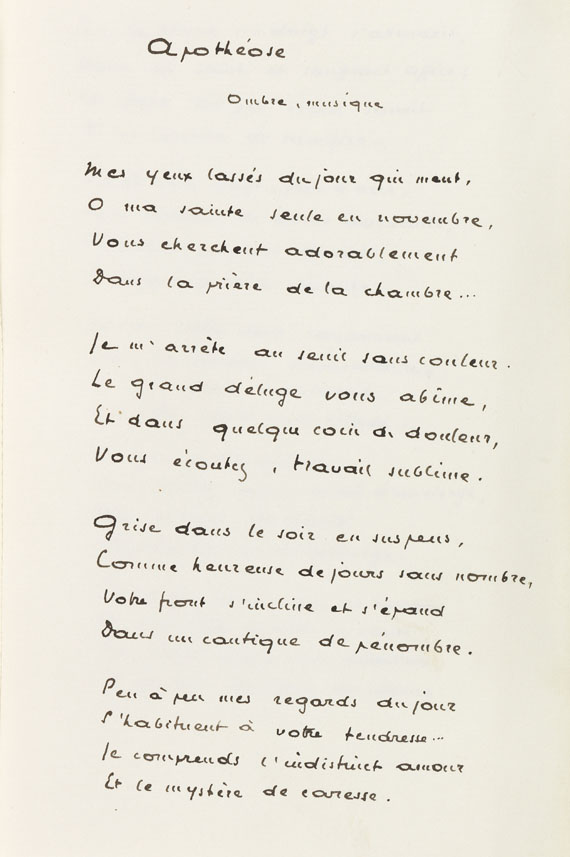 Apothéose
Ombre, musique
Mes yeux lassés du jour qui ment,
O ma sainte seule en novembre,
Vous cherchent adorablement
Dans la prière de la chambre...
Je m'arrête au seuil sans couleur.
Le grand déluge vous abîme,
Et dans quelque coin de douleur,
Vous écoutez, travail sublime.
Grise dans le soir en suspens,
Comme heureuse de jours sans nombre,
Votre front s'incline et s'épand
Dans un cantique de pénombre.
Peu à peu mes regards du jour
S'habituent à votre tendresse...
Je comprends l'indistinct amour
Et le mystère de caresse.